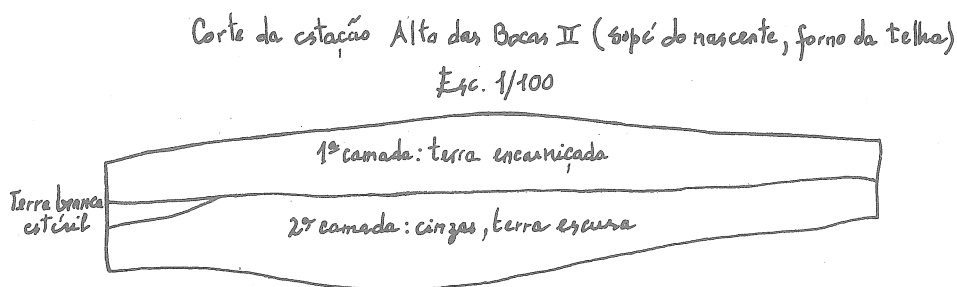 Corte da estação Alto das Bocas II (sopé do nascente, forno da telha)
Esc. 1/100
1ª camada: terra encarniçada
Terra branca
estéril
2ª camada: cinzas, terra escura